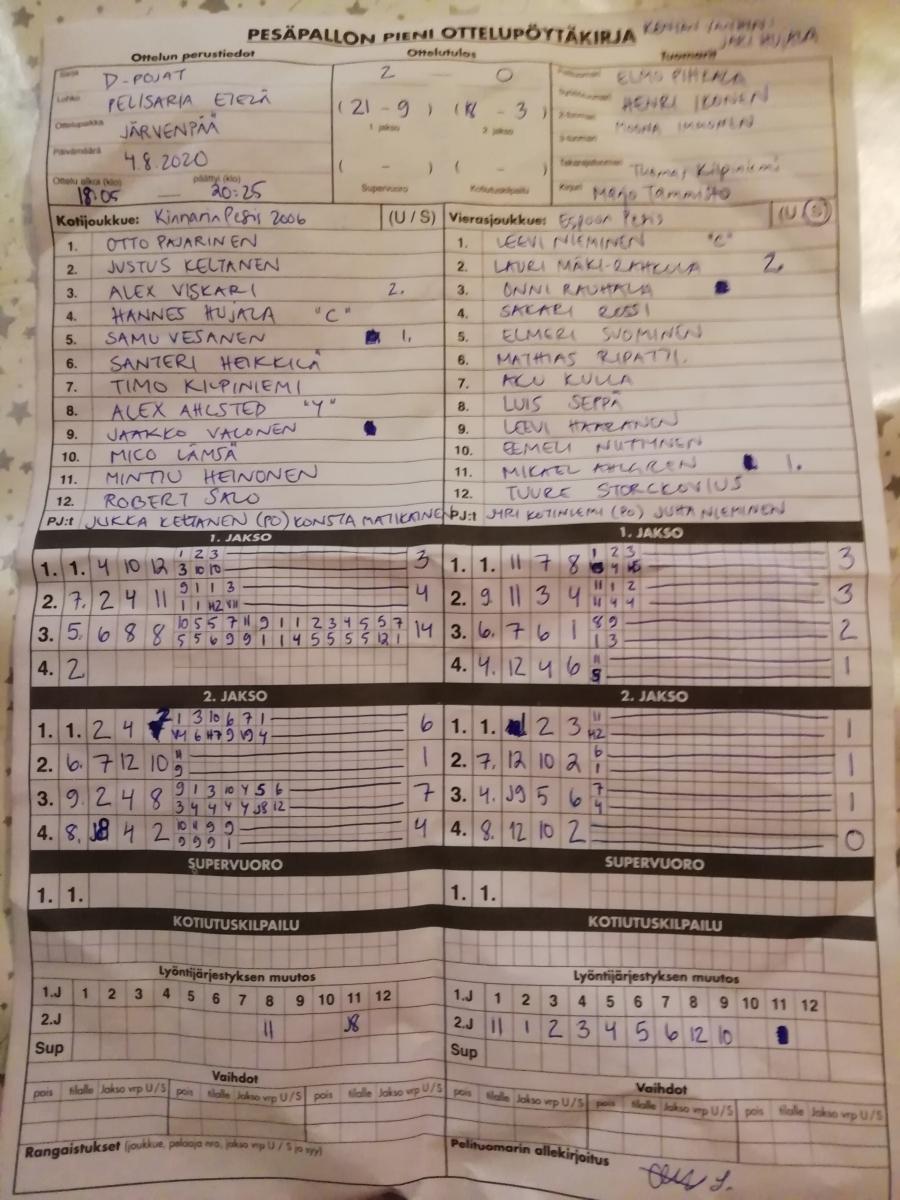 PESÄPALLON PIENI OTTELUPÖYTÄKIRJA
JARI HUJALA
Ottelun perustiedot
Ottelutulos
Tuomarit
Sarja D-POJAT
Lohko PELISARJA ETELÄ
Ottelupaikka JÄRVENPÄÄ
Päivämäärä 4.8.2020
Ottelu alkoi (klo) päättyi (klo)
18:05 — 20:25
2 — 0
(21 - 9) (18 - 3)
1 jakso 2 jakso
( - ) ( - )
Supervuoro Kotiutuskilpailu
Pelituomari ELMO PIHKALA
Syöttötuomari HENRI IKONEN
2-tuomari MOONA IKKONEN
3-tuomari
Takarajatuomari Tuomas Kilpiniemi
Kirjuri Marjo Tammisto
Kotijoukkue: Kinnarin Pesis 2006 (U / S)
1. OTTO PAJARINEN
2. JUSTUS KELTANEN
3. ALEX VISKARI 2.
4. HANNES HUJALA "C"
5. SAMU VESANEN 1.
6. SANTERI HEIKKILÄ
7. TIMO KILPINIEMI
8. ALEX AHLSTED "Y"
9. JAAKKO VALONEN
10. MICO LÄMSÄ
11. MINTTU HEINONEN
12. ROBERT SALO
PJ:t JUKKA KELTANEN (PO) KONSTA MATIKAINEN
Vierasjoukkue: Espoon Pesis (U / S)
1. LEEVI NIEMINEN "C"
2. LAURI MÄKI-RAHKOLA 2.
3. ONNI RAUHALA
4. SAKARI ROSSI
5. ELMERI SUOMINEN
6. MATHIAS RIPATTI
7. AKU KULLA
8. LUIS SEPPÄ
9. LEEVI HAARANEN
10. EEMELI NUTTINEN
11. MIKAEL AHLGREN 1.
12. TUURE STORCKOVIUS
PJ:t JYRI KOTINIEMI (PO) JUHA NIEMINEN
1. JAKSO
1 2 3
1. 1. 4 10 12 3 10 10 3
9 1 1 3
2. 7. 2 4 11 4
10 5 5 7 11 9 1 1 2 3 4 5 5 7
3. 5. 6 8 8 5 5 6 9 9 1 1 4 5 5 5 5 12 1 14
4. 2
1. JAKSO
1 2 3
1. 1. 11 7 8 3
11 1 2
2. 9. 11 3 4 11 4 4 3
8 9
3. 6. 7 6 1 1 3 2
11
4. 4. 12 4 6 1
2. JAKSO
1 3 10 6 7 1
1. 1. 2 4 6
11
2. 6. 7 12 10 9 1
9 1 3 10 4 5 6
3. 9. 2 4 8 3 4 4 4 4 J8 12 7
10 11 9 9
4. 8. J8 4 2 9 9 9 1 4
2. JAKSO
11
1. 1. 2 3 H2 1
6
2. 7. 12 10 2 1 1
7
3. 4. J9 5 6 4 1
4. 8. 12 10 2 0
SUPERVUORO
1. 1.
SUPERVUORO
1. 1.
KOTIUTUSKILPAILU
KOTIUTUSKILPAILU
Lyöntijärjestyksen muutos
1.J 1 2 3 4 5 6 7 8 9 10 11 12
2.J 11 J8
Sup
Lyöntijärjestyksen muutos
1.J 1 2 3 4 5 6 7 8 9 10 11 12
2.J 11 1 2 3 4 5 6 12 10
Sup
Vaihdot
pois tilalle Jakso vrp U/S pois tilalle Jakso vrp U/S pois tilalle Jakso vrp U/S
Vaihdot
pois tilalle Jakso vrp U/S pois tilalle Jakso vrp U/S pois tilalle Jakso vrp U/S
Rangaistukset (joukkue, pelaaja nro, jakso vrp U / S ja syy)
Pelituomarin allekirjoitus